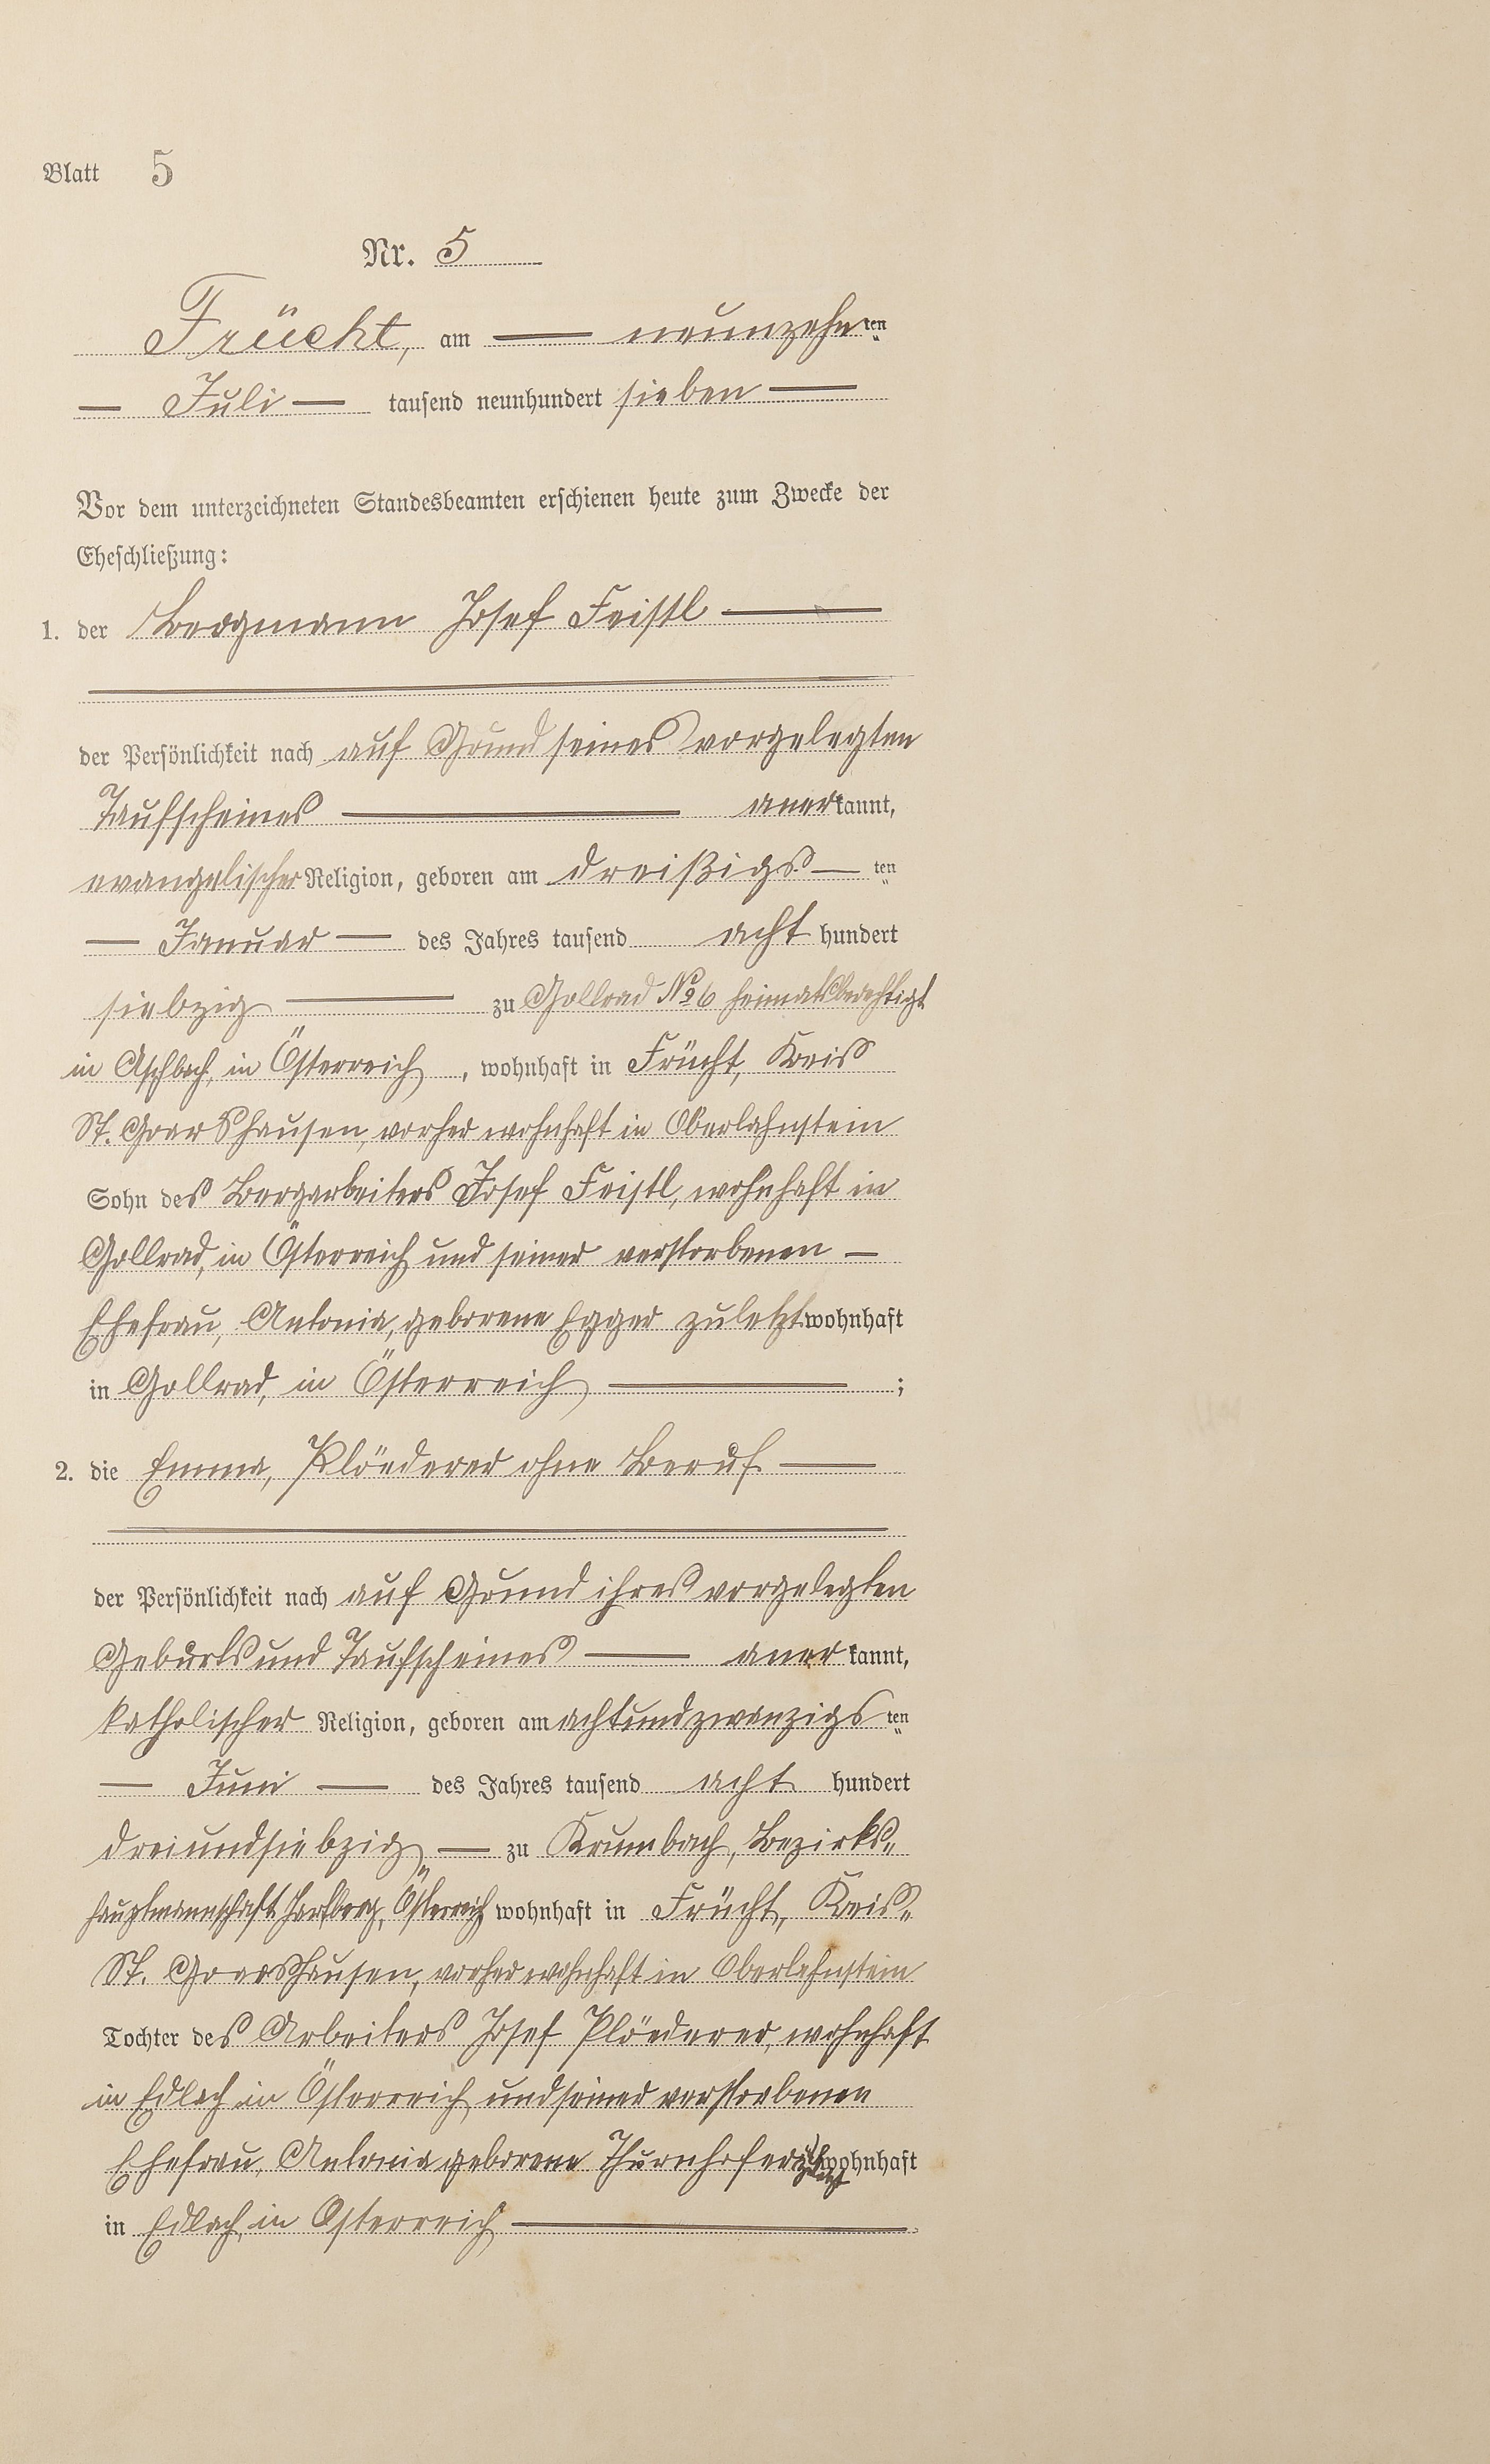 Blatt 5
Nr. 5
Frücht, am — neunzehnten
— Juli — tausend neunhundert sieben —
Vor dem unterzeichneten Standesbeamten erschienen heute zum Zwecke der
Eheschließung:
1. der Bergmann Josef Feistl —
der Persönlichkeit nach auf Grund seines vorgelegten
Taufscheines — anerkannt,
evangelischer Religion, geboren am dreißigs—ten
— Januar — des Jahres tausend acht hundert
siebzig — zu Gollrad No 6 heimatsberechtigt
in Aschbach, in Österreich, wohnhaft in Frücht, Kreis
St. Goarshausen, vorher wohnhaft in Oberlahnstein
Sohn des Bergarbeiters Josef Feistl, wohnhaft in
Gollrad, in Österreich und seiner verstorbenen —
Ehefrau, Antonia, geborene Egger zuletzt wohnhaft
in Gollrad, in Österreich — ;
2. die Emma, Plöederer ohne Beruf —
der Persönlichkeit nach auf Grund ihres vorgelegten
Geburts und Taufscheines — anerkannt,
katholischer Religion, geboren am achtundzwanzigsten
— Juni — des Jahres tausend acht hundert
dreiundsiebzig — zu Krumbach, Bezirks„
hauptmannschaft Hartberg, Österreich wohnhaft in Frücht, Kreis„
St. Goarshausen, vorher wohnhaft in Oberlahnstein
Tochter des Arbeiters Josef Plöederer, wohnhaft
in Edlach in Österreich und seiner verstorbenen
Ehefrau, Antonia geborene Thurnhofer zuletzt wohnhaft
in Edlach, in Österreich — .